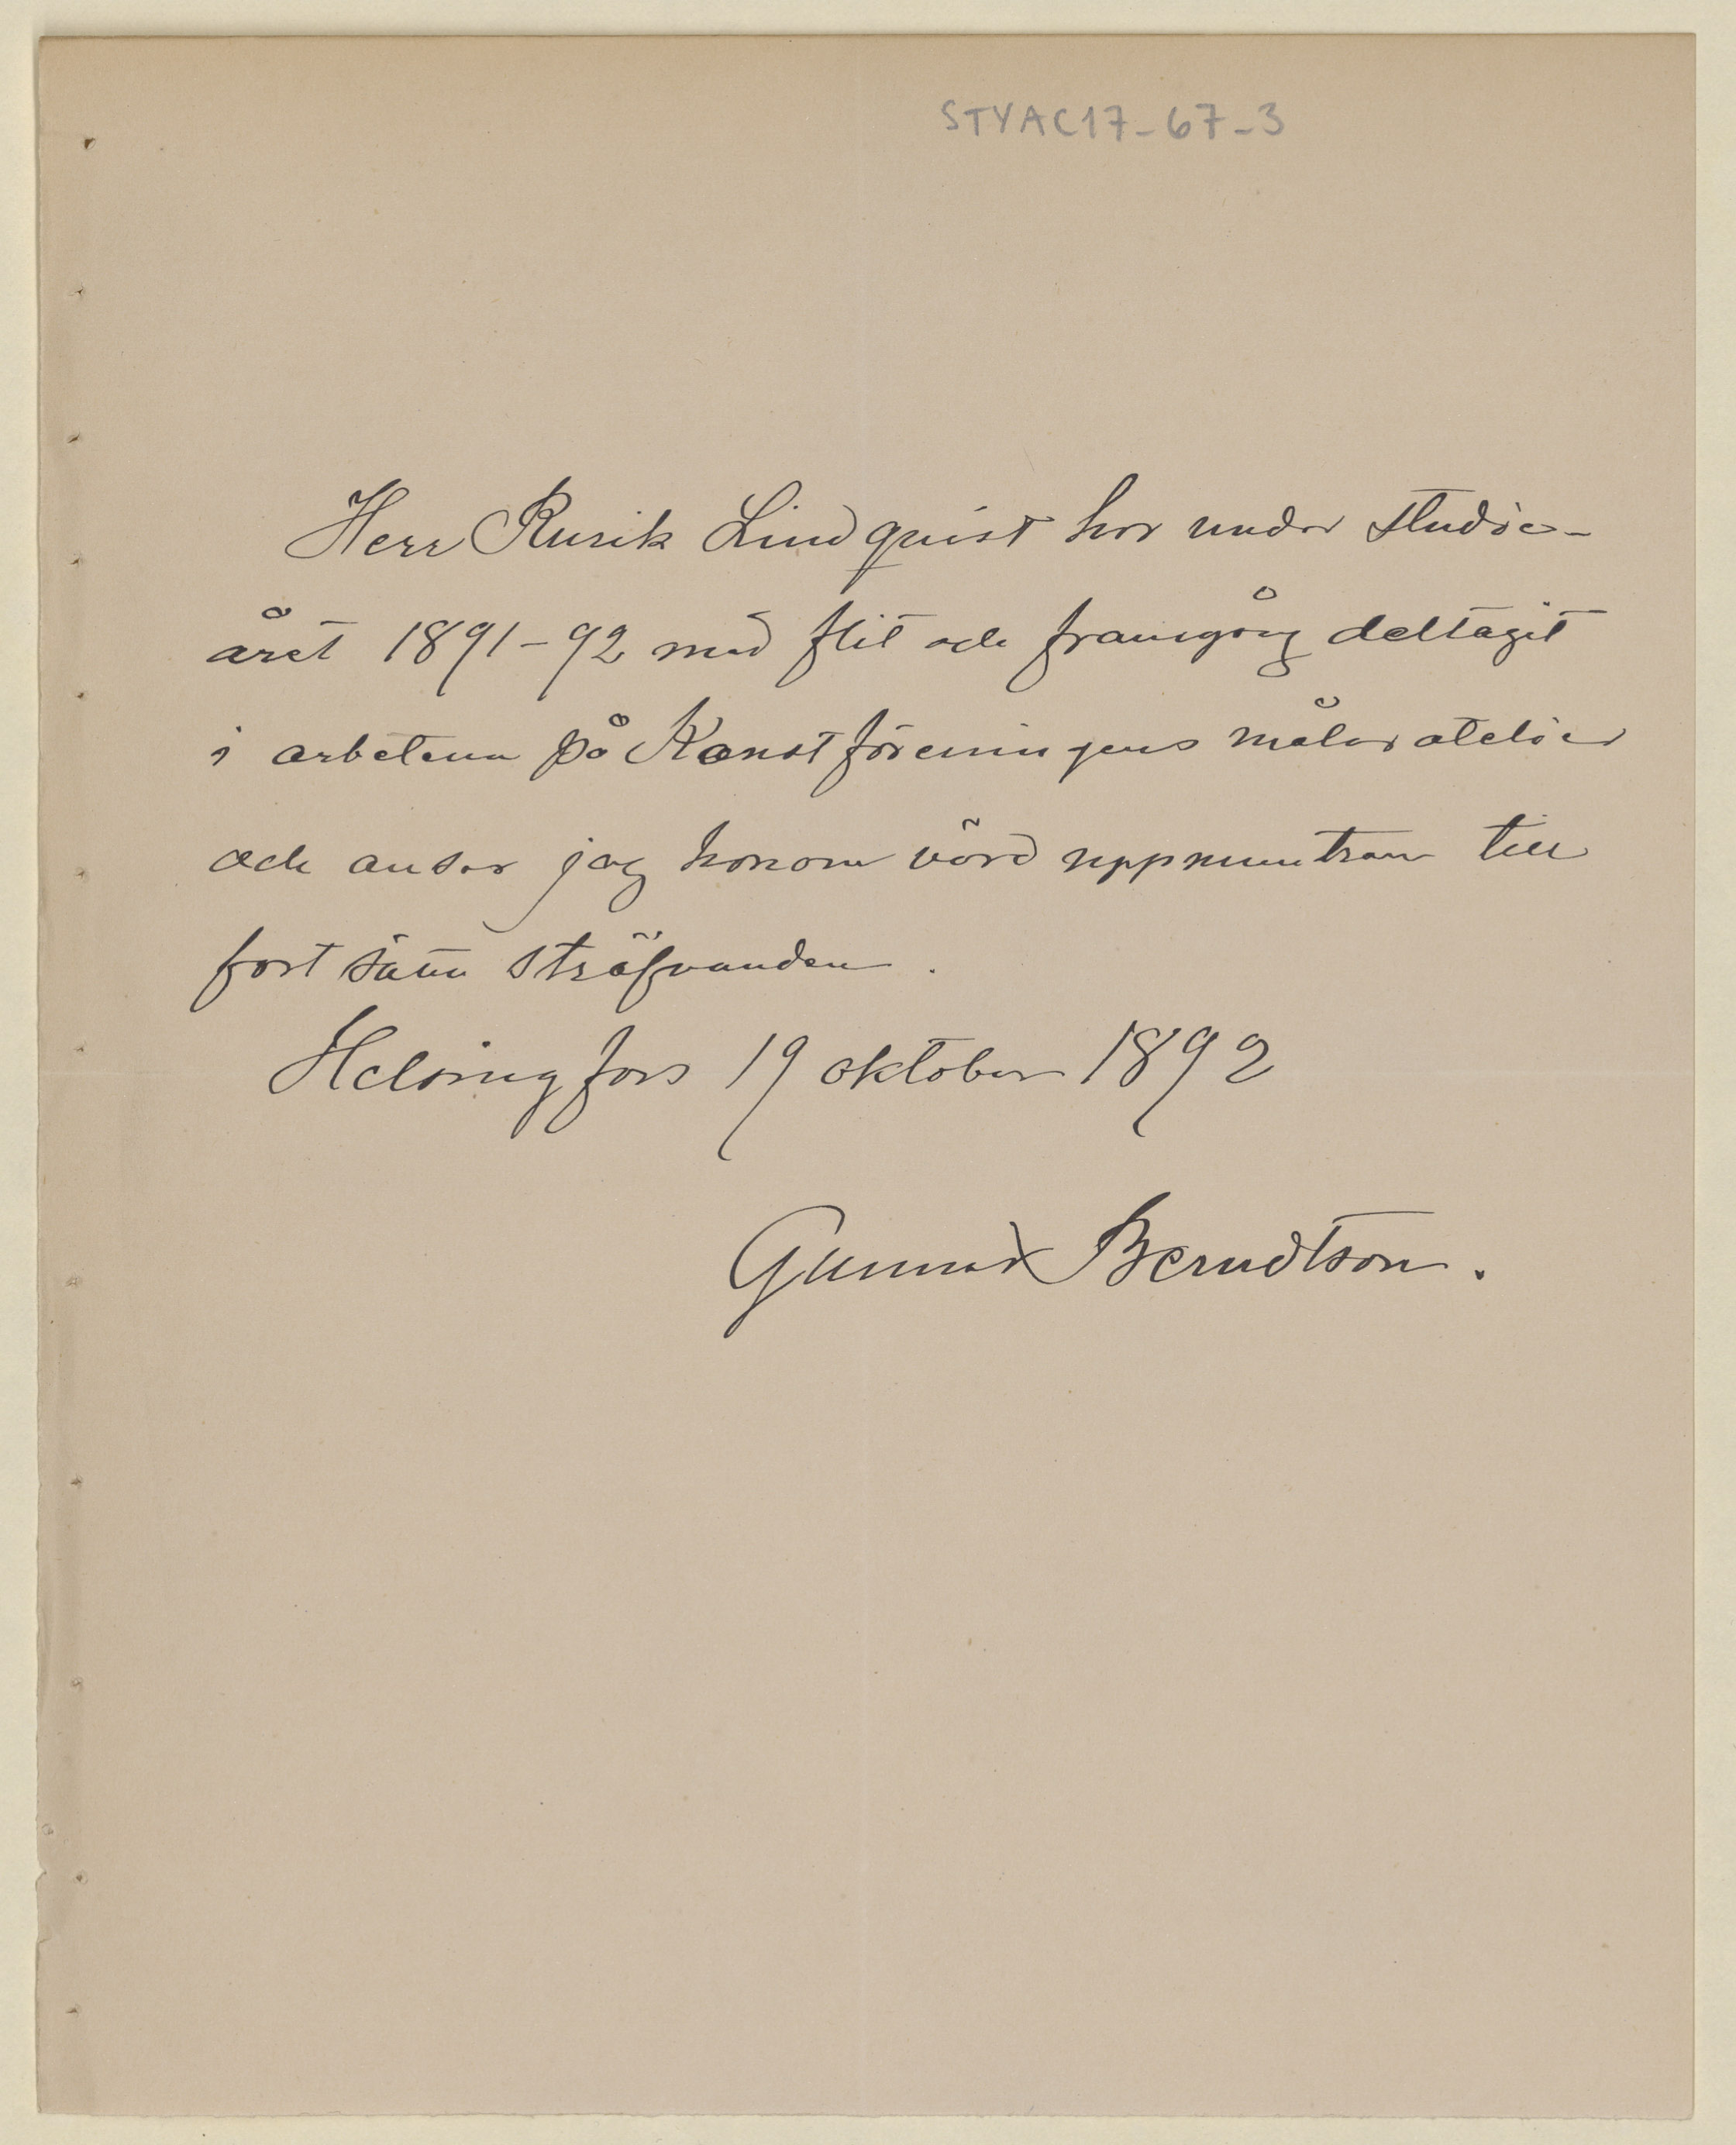 STYAC17-67-3
Herr Rurik Lindquist har under studie-
året 1891-92 med flit och framgång deltagit
i arbetena på Konstföreningens målar atelier
och anser jag honom värd uppmuntran till
fortsatta sträfvanden.
Helsingfors 19 oktober 1892
Gunnar Berndtson.